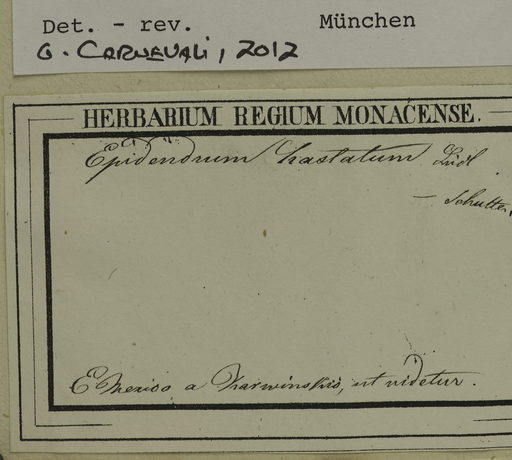 Det. - rev. München
G. CARNEVALI, 2012
HERBARIUM REGIUM MONACENSE.
Epidendrum hastatum Lindl
— Schultes,
E Mexico a Karwinskio, ut videtur.